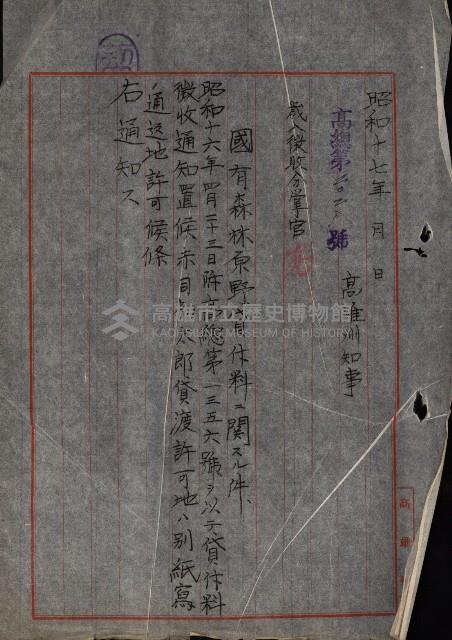 昭和十七年 月 日
高總第 號
高雄州知事
歳入徴收分掌官
國有森林原野貸付料ニ關スル件
昭和十六年四月二十三日附高總第一三五六號ヲ以テ貸付料
徴收通知置候赤司 太郎貸渡許可地ハ別紙寫
通返地許可候條
右通知ス
高雄市立歷史博物館
KAOHSIUNG MUSEUM OF HISTORY
高雄